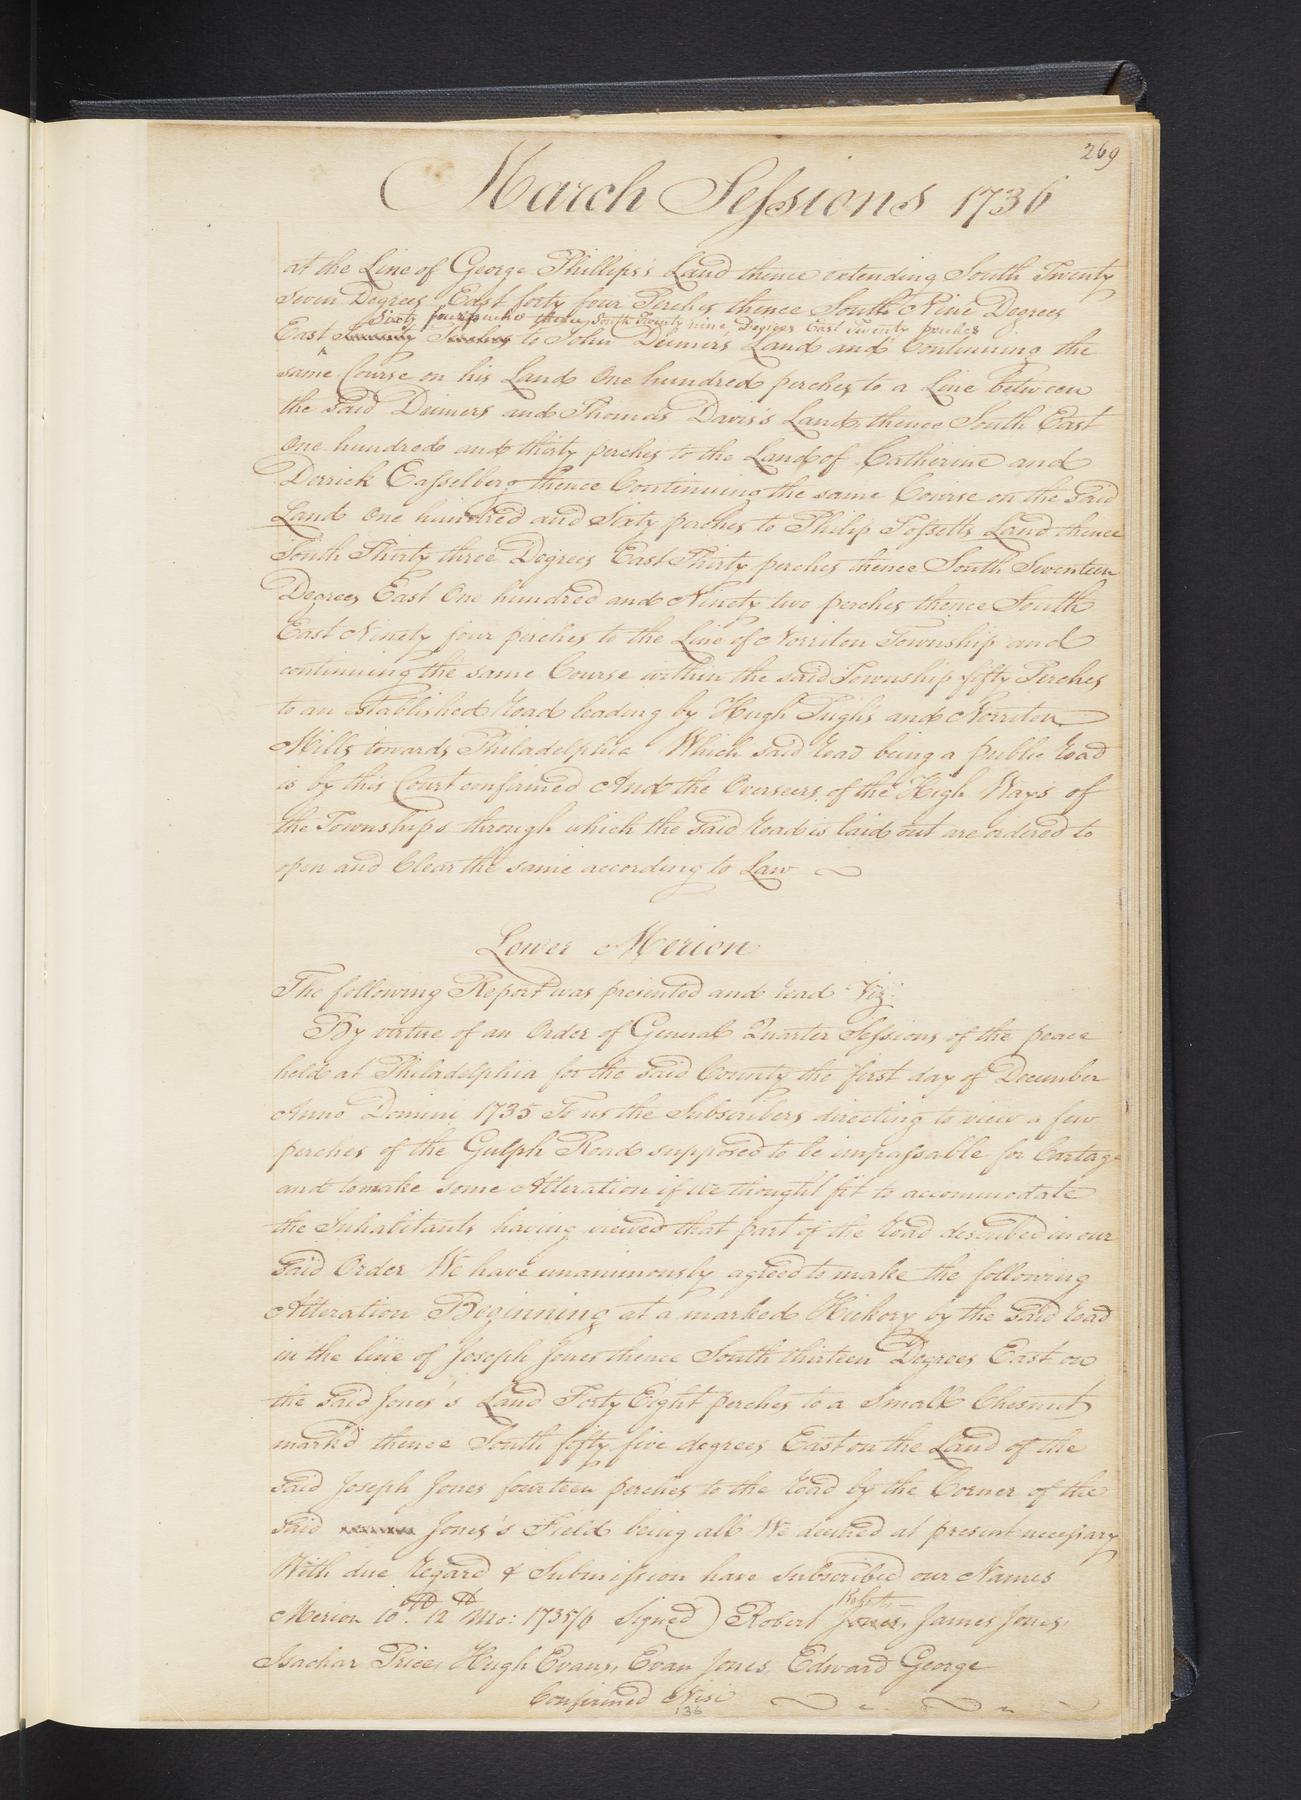 269
March Sessions 1736
at the Line of George Phillips's Land thence extending South Twenty
Seven Degrees East forty four Perches thence South Nine Degrees
Sixty four perches thence South Twenty nine Degrees East Twenty perches
East to John Deimers Land and Continuing the
same Course on his Land One hundred perches to a Line between
the said Deimers and Thomas Davis's Land, thence South East
One hundred and thirty perches to the Land of Catherine and
Derrick Casselberg thence Continuing the same Course on the said
Land One hundred and Sixty perches to Philip Land thence
South Thirty three Degrees East Thirty perches thence South Seventeen
Degrees East One hundred and Ninety two perches thence South
East Ninety four perches to the Line of Norriton Township and
continuing the same Course within the said Township fifty Perches
to an established Road leading by Hugh Pugh's and Norriton
Mills towards Philadelphia Which said Road being a public Road
is by this Court confirmed And the Overseers of the High Ways of
the Townships through which the said Road is laid out are ordered to
open and Clear the same according to Law
Lower Merion
The following Report was presented and read Viz:
By virtue of an Order of General Quarter Sessions of the peace
held at Philadelphia for the said County the first day of December
Anno Domini 1735 To us the Subscribers directing to view a few
perches of the Gulph Road supposed to be impassable for Cartage
and to make some Alteration if we thought fit to accommodate
the Inhabitants having viewed that part of the Road described in our
said Order We have unanimously agreed to make the following
Alteration Beginning at a marked Hickory by the said Road
in the line of Joseph Jones thence South thirteen Degrees East on
the said Jones's Land Forty Eight perches to a Small Chesnut
mark'd thence South fifty five degrees East on the Land of the
said Joseph Jones fourteen perches to the Road by the Corner of the
said Jones's Field being all We deemed at present necessary
With due Regard & Submission have subscribed our Names
Roberts
Merion 10th 12th Mo: 1735/6 Signed) Robert Jones, James Jones,
Isachar Price, Hugh Evans, Evan Jones, Edward George
Confirmed Nisi
136